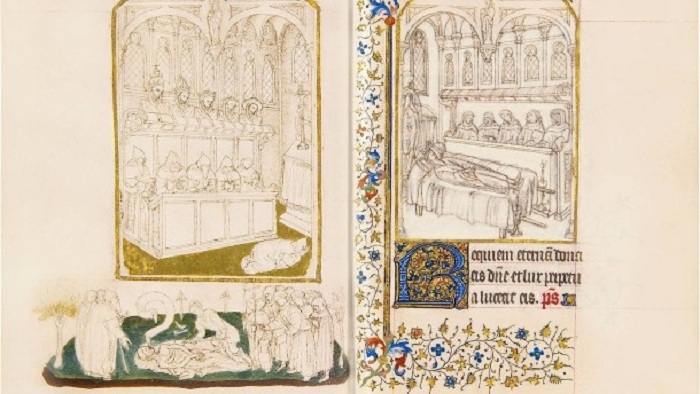 Requiem eternā dona
eis dñe et lux perpetu
a luceat eis. ps